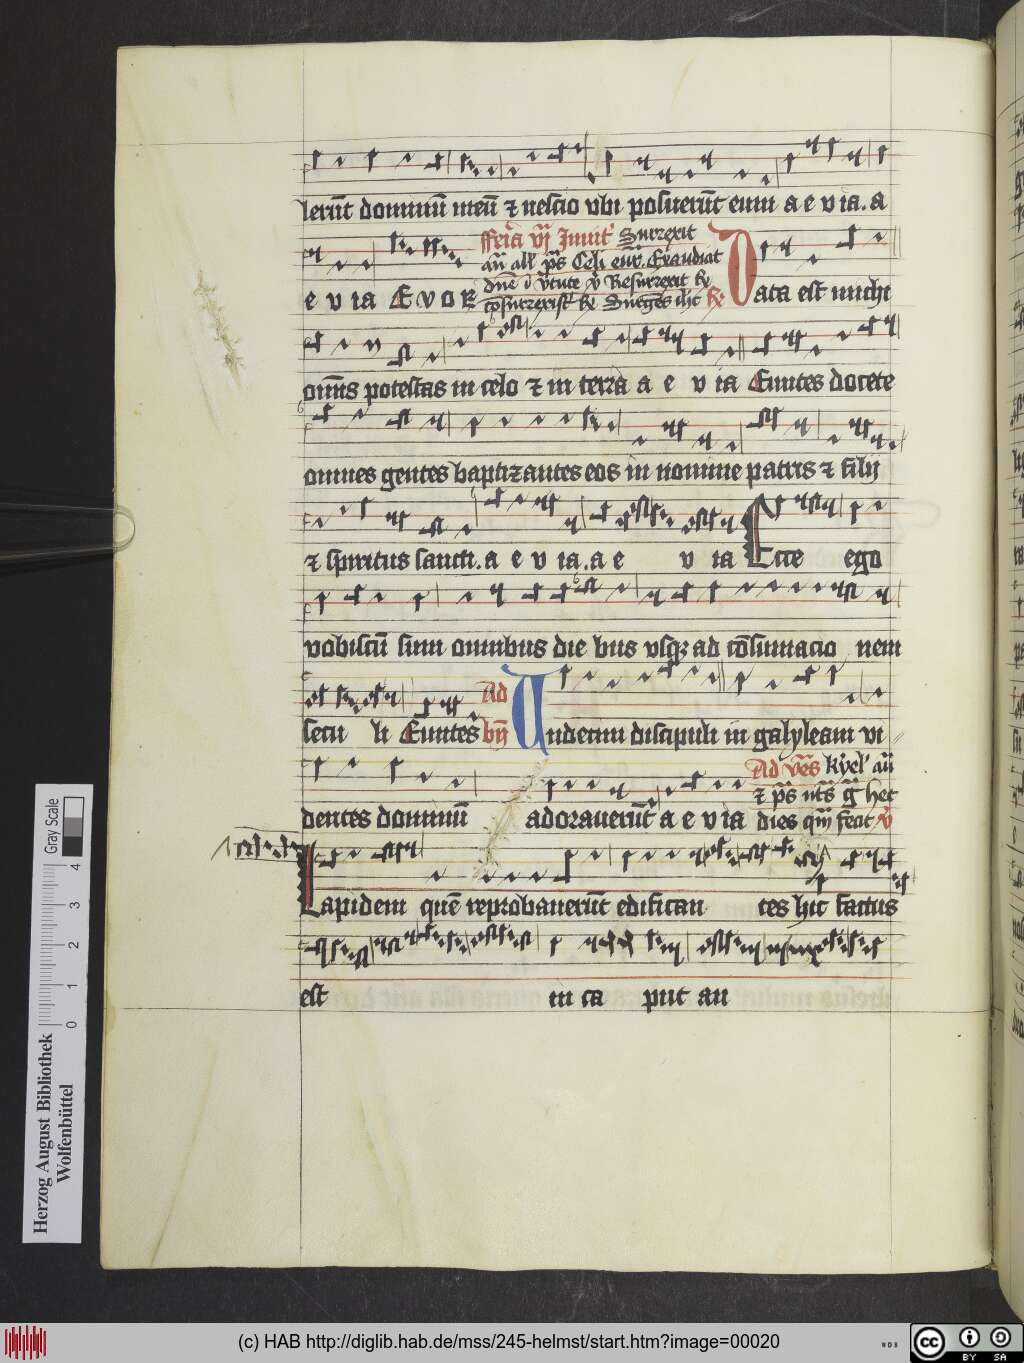 lerūt dominū meū ⁊ nescio vbi posuerūt eum a e v ia. a
fferia vj Inuit Surrexit
añ all' ps Celi enar. Exaudiat
dne i v̓tute v̓ Resurrexit
Surges
e v ia Evoe
Data est michi
omīs potestas in celo ⁊ in terra a e v ia Euntes docete
omnes gentes baptizantes eos in nomine patris ⁊ filij
⁊ spiritus sancti. a e v ia. a e v ia Ecce ego
vobiscū sum omnibus die bus vsqꝫ ad cōsumacio nem
secu li Euntes Ad bn̄ Undecim discipuli in galyleam vi
dentes dominū adorauerūt a e v ia
Ad ves kyel' añ
⁊ ps
hec
dies qm̄ fecit v̓
Lapidem quē reprobauerūt edifican tes hic factus
est in ca put an
Gray Scale
4
3
2
1
0
Herzog August Bibliothek
Wolfenbüttel
(c) HAB http://diglib.hab.de/mss/245-helmst/start.htm?image=00020
WDB
cc BY SA